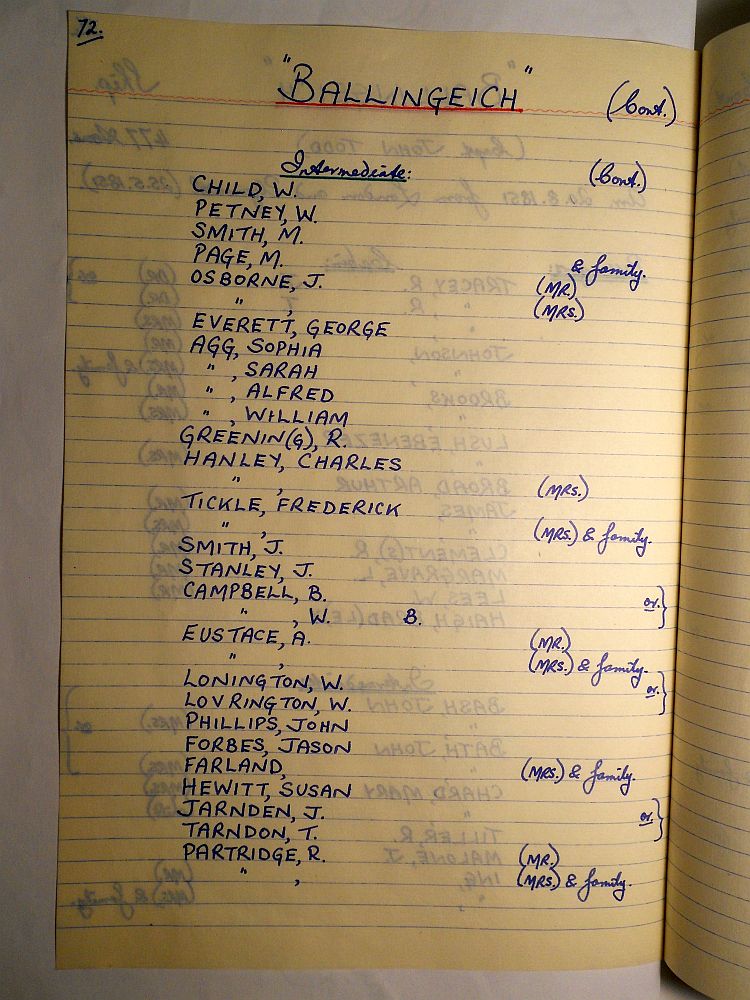 72.
"BALLINGEICH" (Cont.)
Intermediate: (Cont.)
CHILD, W.
PETNEY, W.
SMITH, M.
PAGE, M. & family.
OSBORNE, J. (MR.)
" , (MRS.)
EVERETT, GEORGE
AGG, SOPHIA
" , SARAH
" , ALFRED
" , WILLIAM
GREENIN(G), R.
HANLEY, CHARLES
" , (MRS.)
TICKLE, FREDERICK
" , (MRS.) & family.
SMITH, J.
STANLEY, J.
CAMPBELL, B. or. }
" , W. B.
EUSTACE, A. (MR.)
" , (MRS.) & family.
LONINGTON, W. or. }
LOVRINGTON, W.
PHILLIPS, JOHN
FORBES, JASON
FARLAND, (MRS.) & family.
HEWITT, SUSAN
JARNDEN, J. or. }
TARNDON, T.
PARTRIDGE, R. (MR.)
" , (MRS.) & family.